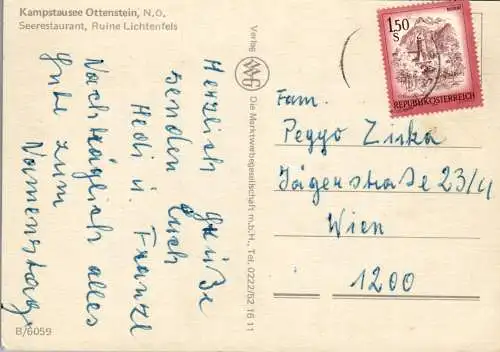 Kampstausee Ottenstein, N.Ö.
Seerestaurant, Ruine Lichtenfels
Herzlich Grüße
senden Euch
Hedi u. Franzl
Nachträglich alles
Gute zum
Namenstag
B/6059
Verlag
Die Marktwerbegesellschaft m.b.H., Tel. 0222/52 16 11
1,50
S
REPUBLIK ÖSTERREICH
Fam.
Peggo Zuka
Jägerstraße 23/4
Wien
1200